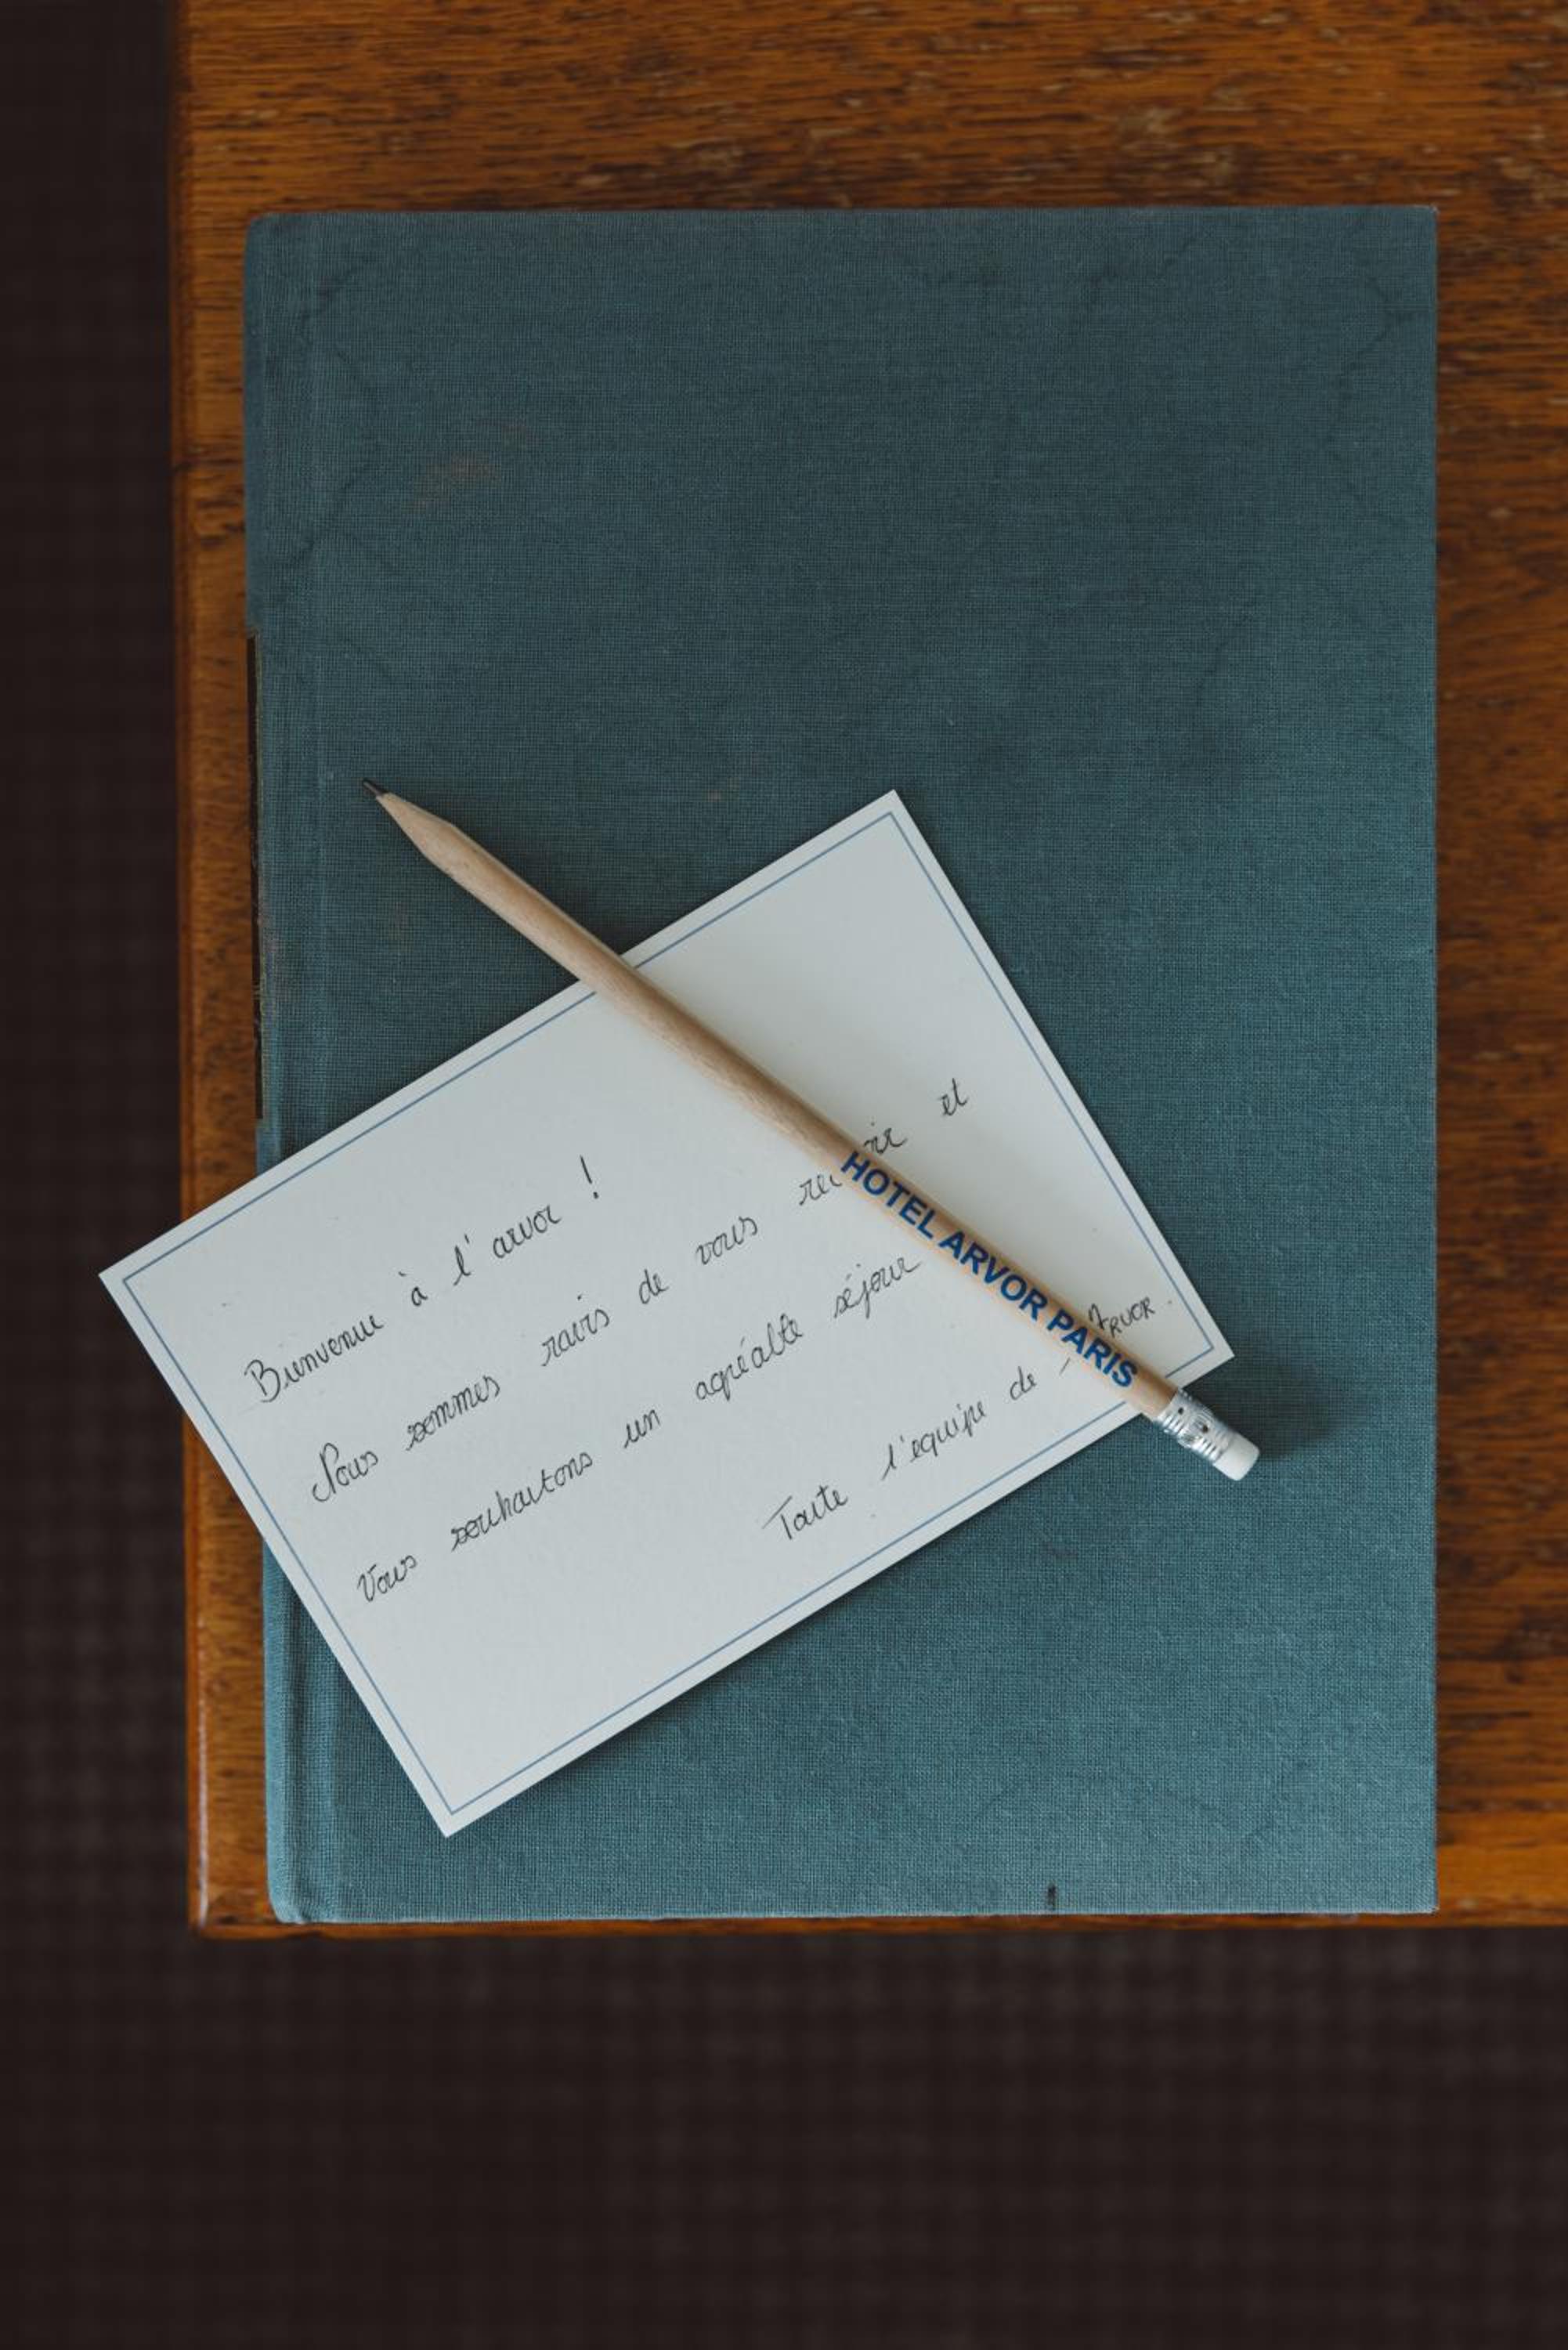 Bienvenue à l'arvor !
Nous sommes ravis de vous et
Vous souhaitons un agréable séjour
Toute l'equipe de Arvor.
HOTEL ARVOR PARIS